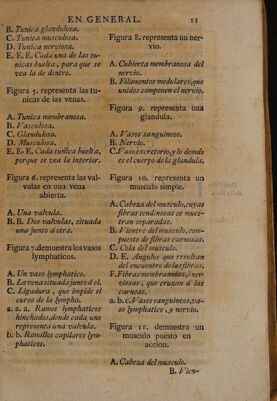 EN GENERAL. 11
B. Tunica glandulosa.
C. Tunica musculosa.
D. Tunica nerviosa.
E. E. E. Cada una de las tu-
nicas buelta, para que se
vea la de dentro.
Figura 5. representa las tu-
nicas de las venas.
A. Tunica membranosa.
B. Vasculosa.
C. Glandulosa.
D. Musculosa.
E. E. E. Cada tunica buelta,
porque se vea la interior.
Figura 6. representa las val-
vulas en una vena
abierta.
A. Una valvula.
B. B. Dos valvulas, situada
una junto à otra.
Figura 7. demuestra los vasos
lymphaticos.
A. Un vaso lymphatico.
B. La vena situada junto à el.
C. Ligadura, que impide el
curso de la lympha.
a. a. a. Ramos lymphaticos
hinchados, donde cada uno
representa una valvula.
b. b. Ramillos capilares lym-
phaticos.
Figura 8. representa un ner-
vio.
A. Cubierta membranosa del
nervio.
B. Filamentos medulares, que
unidos componen el nervio.
Figura 9. representa una
glandula.
A. Vasos sanguineos.
B. Nervio.
C. Vaso excretorio, y lo demàs
es el cuerpo de la glandula.
Figura 10. representa un
musculo simple.
A. Cabeza del musculo, cuyas
fibras tendinosas se mues-
tran separadas.
B. Vientre del musculo, com-
puesto de fibras carnosas.
C. Cola del musculo.
D. E. Angulos que resultan
del encuentro de las fibras.
F. Fibras membranosas, ò ner-
viosas, que cruzan à las
carneas.
a. b. c. Vasos sanguineos, va-
so lymphatico, y nervio.
Figura 11. demuestra un
musculo puesto en
accion.
A. Cabeza del musculo.
B. Vien-